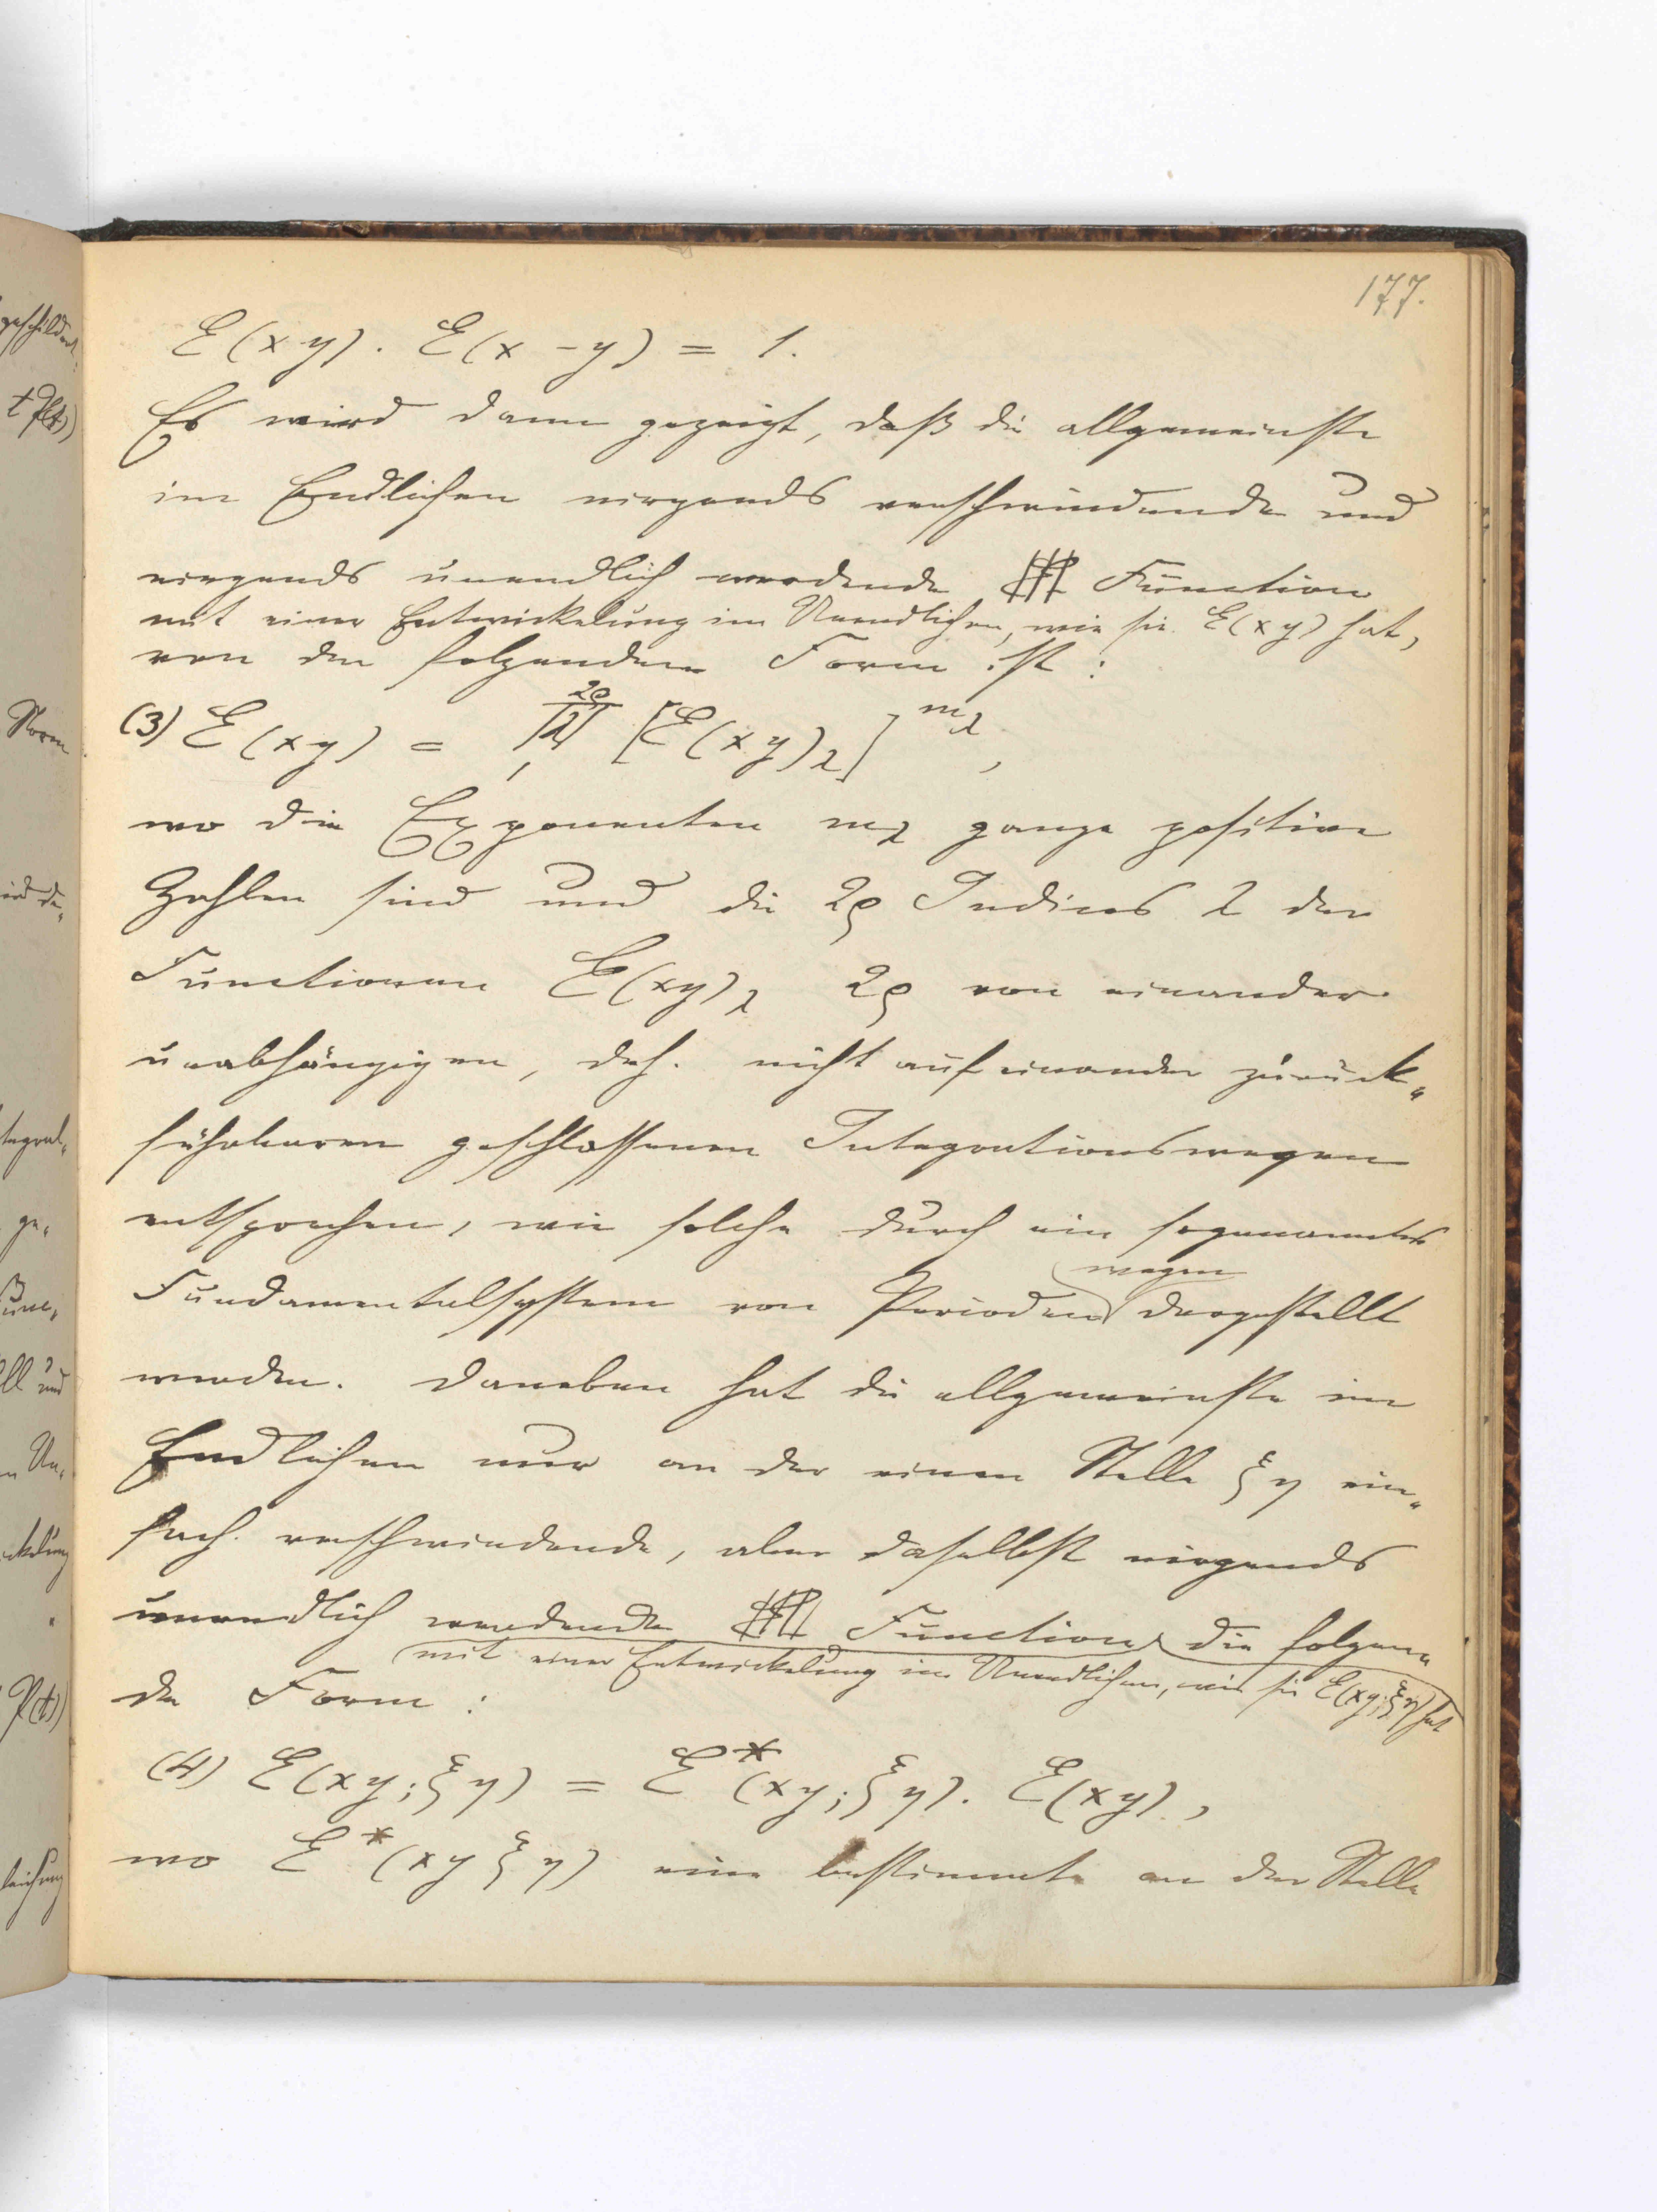 177.
E(xy). E(x -y) = 1.
Es wird dann gezeigt, daß die allgemeinste
im Endlichen nirgends verschwindende und
nirgends unendlich werdende Function
mit einer Entwickelung im Unendlichen, wie sie E(xy) hat,
von der folgenden Form ist:
(3) E(xy) = Π [E(xy)λ]^mλ,
2ρ
1
wo die Exponenten mλ ganze positive
Zahlen sind und die 2ρ Indices λ der
Functionen E(xy)λ 2ρ von einander
unabhängigen, d.h. nicht auf einander zurück-
führbaren geschlossenen Integrationswegen
entsprechen, wie solche durch ein sogenanntes
Fundamentalsystem von Perioden wegen dargestellt
werden. Daneben hat die allgemeinste im
Endlichen nur an der einen Stelle ξη ein-
fach verschwindende, aber daselbst nirgends
unendlich werdende Function die folgen-
mit einer Entwickelung im Unendlichen, wie sie E(xy;ξη) hat
de Form:
(4) E(xy;ξη) = E*(xy;ξη). E(xy),
wo E*(xy ξη) eine bestimmte an der Stelle
geschildert
tP(t))
Norm
wird de-
tegral-
ge-
Func-
ll und
n Un-
ckelung
P(t))
leichung